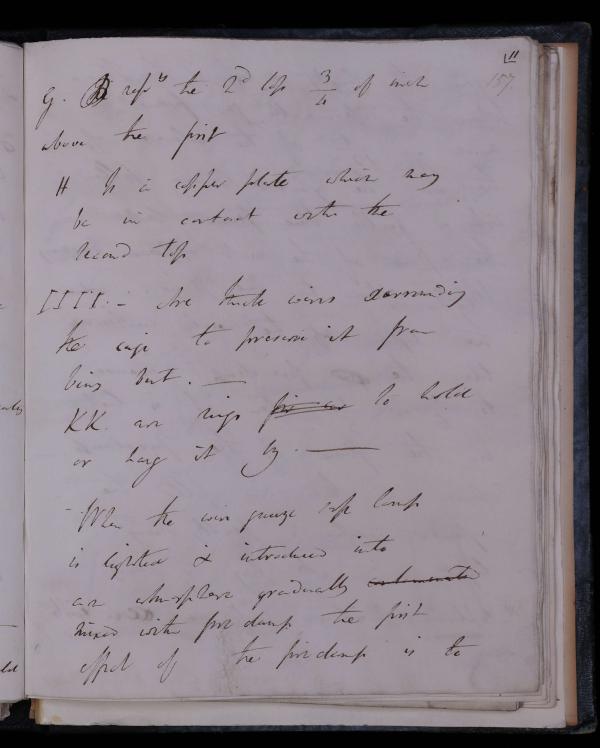 11
157.
G. reps the 2d top 3/4 of inch
above the first
H Is a copper plate which may
be in contact with the
second top
IIII. – Are thick wires surrounding
the cage to preserve it from
being bent. —
KK. are rings for air to hold
or hang it by. —
When the wire gauze safe lamp
is lighted & introduced into
an atmosphere gradually
mixed with fire damp the first
effect of the fire damp is to